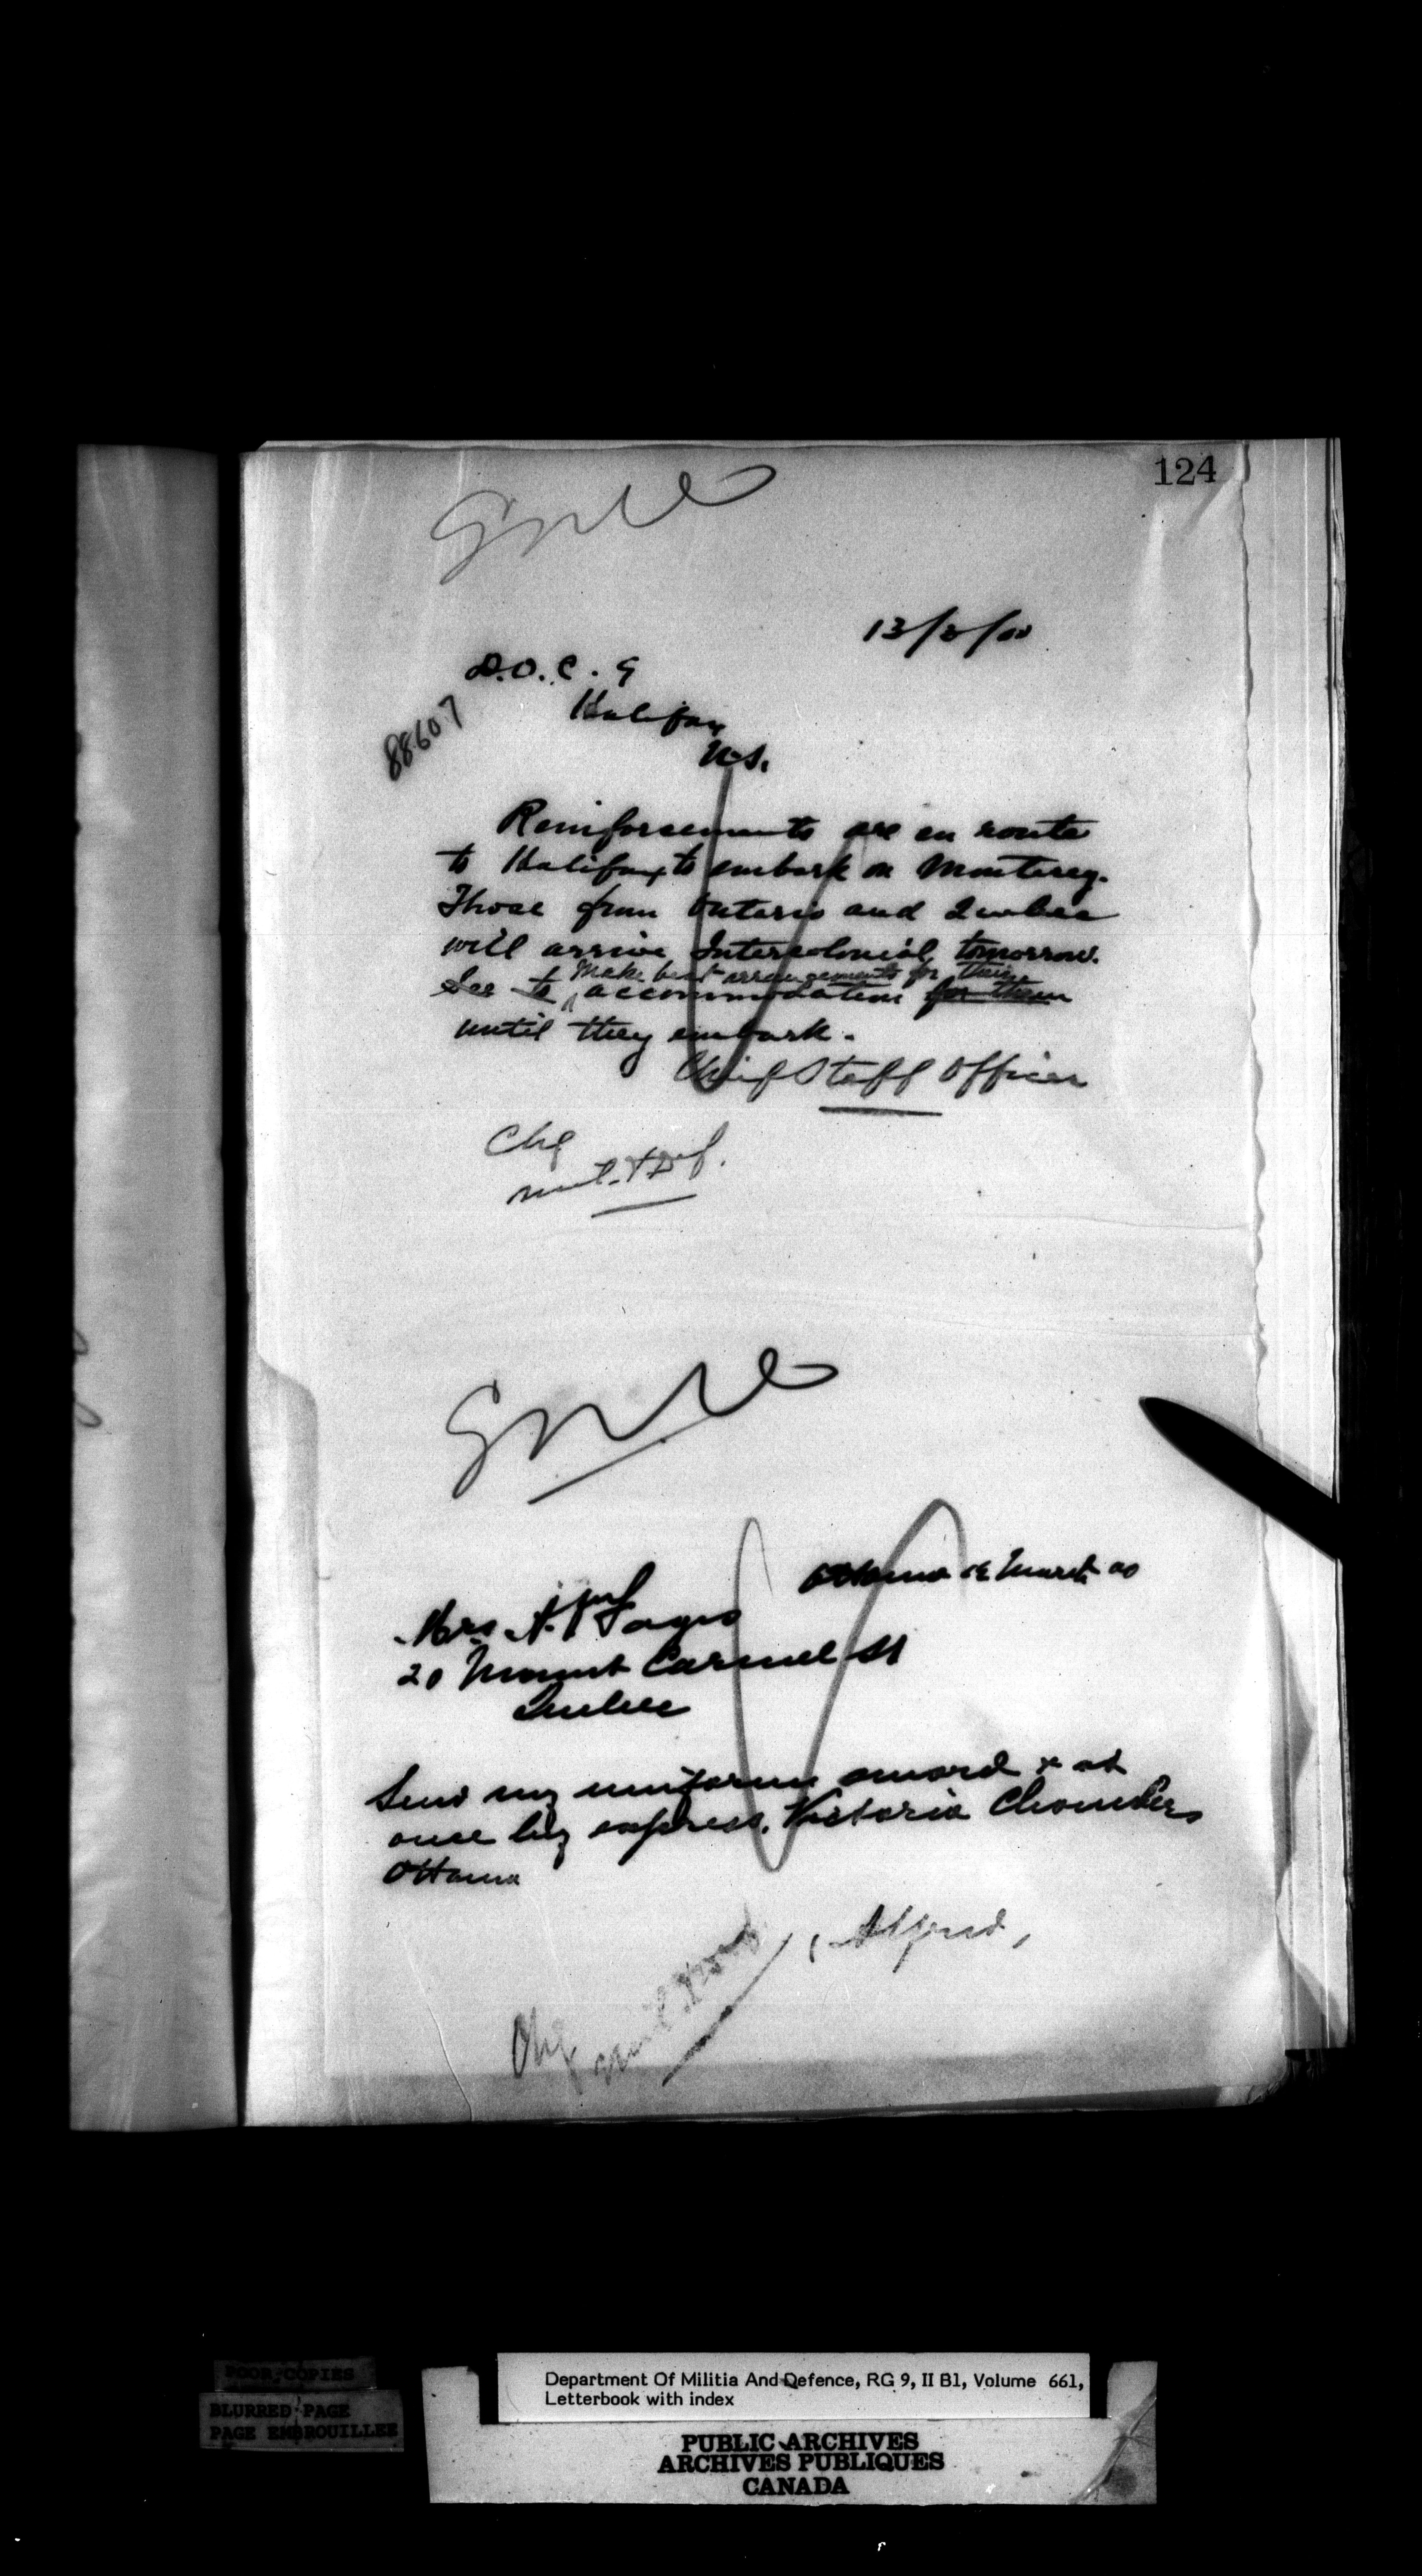 124
G N W
13/3/00
D.O.C. 9
Halifax
N.S.
88607
Reinforcements are en route
to Halifax to embark on Monterey.
Those from Ontario and Quebec
will arrive Intercolonial tomorrow.
Make best arrangements for their
See to accommodation for them
until they embark.
Chief Staff Officer
Chg
Mil. & Def.
G N W
Ottawa March 00
Mrs. A.
20 Mount Carmel St
Quebec
Send my uniform sword & at
once by express. Victoria Chambers
Ottawa
(Alfred)
Chg
Mil.
POOR COPIES
BLURRED PAGE
PAGE EMBROUILLEE
Department Of Militia And Defence, RG 9, II B1, Volume 661,
Letterbook with index
PUBLIC ARCHIVES
ARCHIVES PUBLIQUES
CANADA